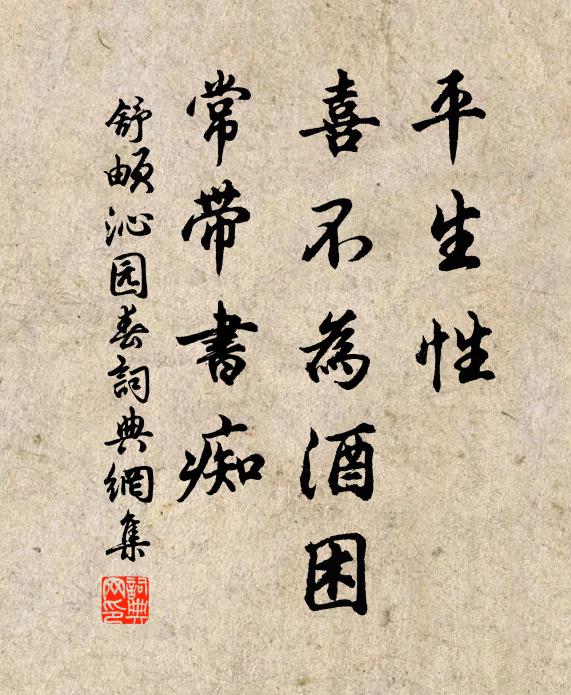 平生性
喜不為酒困
常带書痴
舒頔沁园春詞典網集
詞典网印